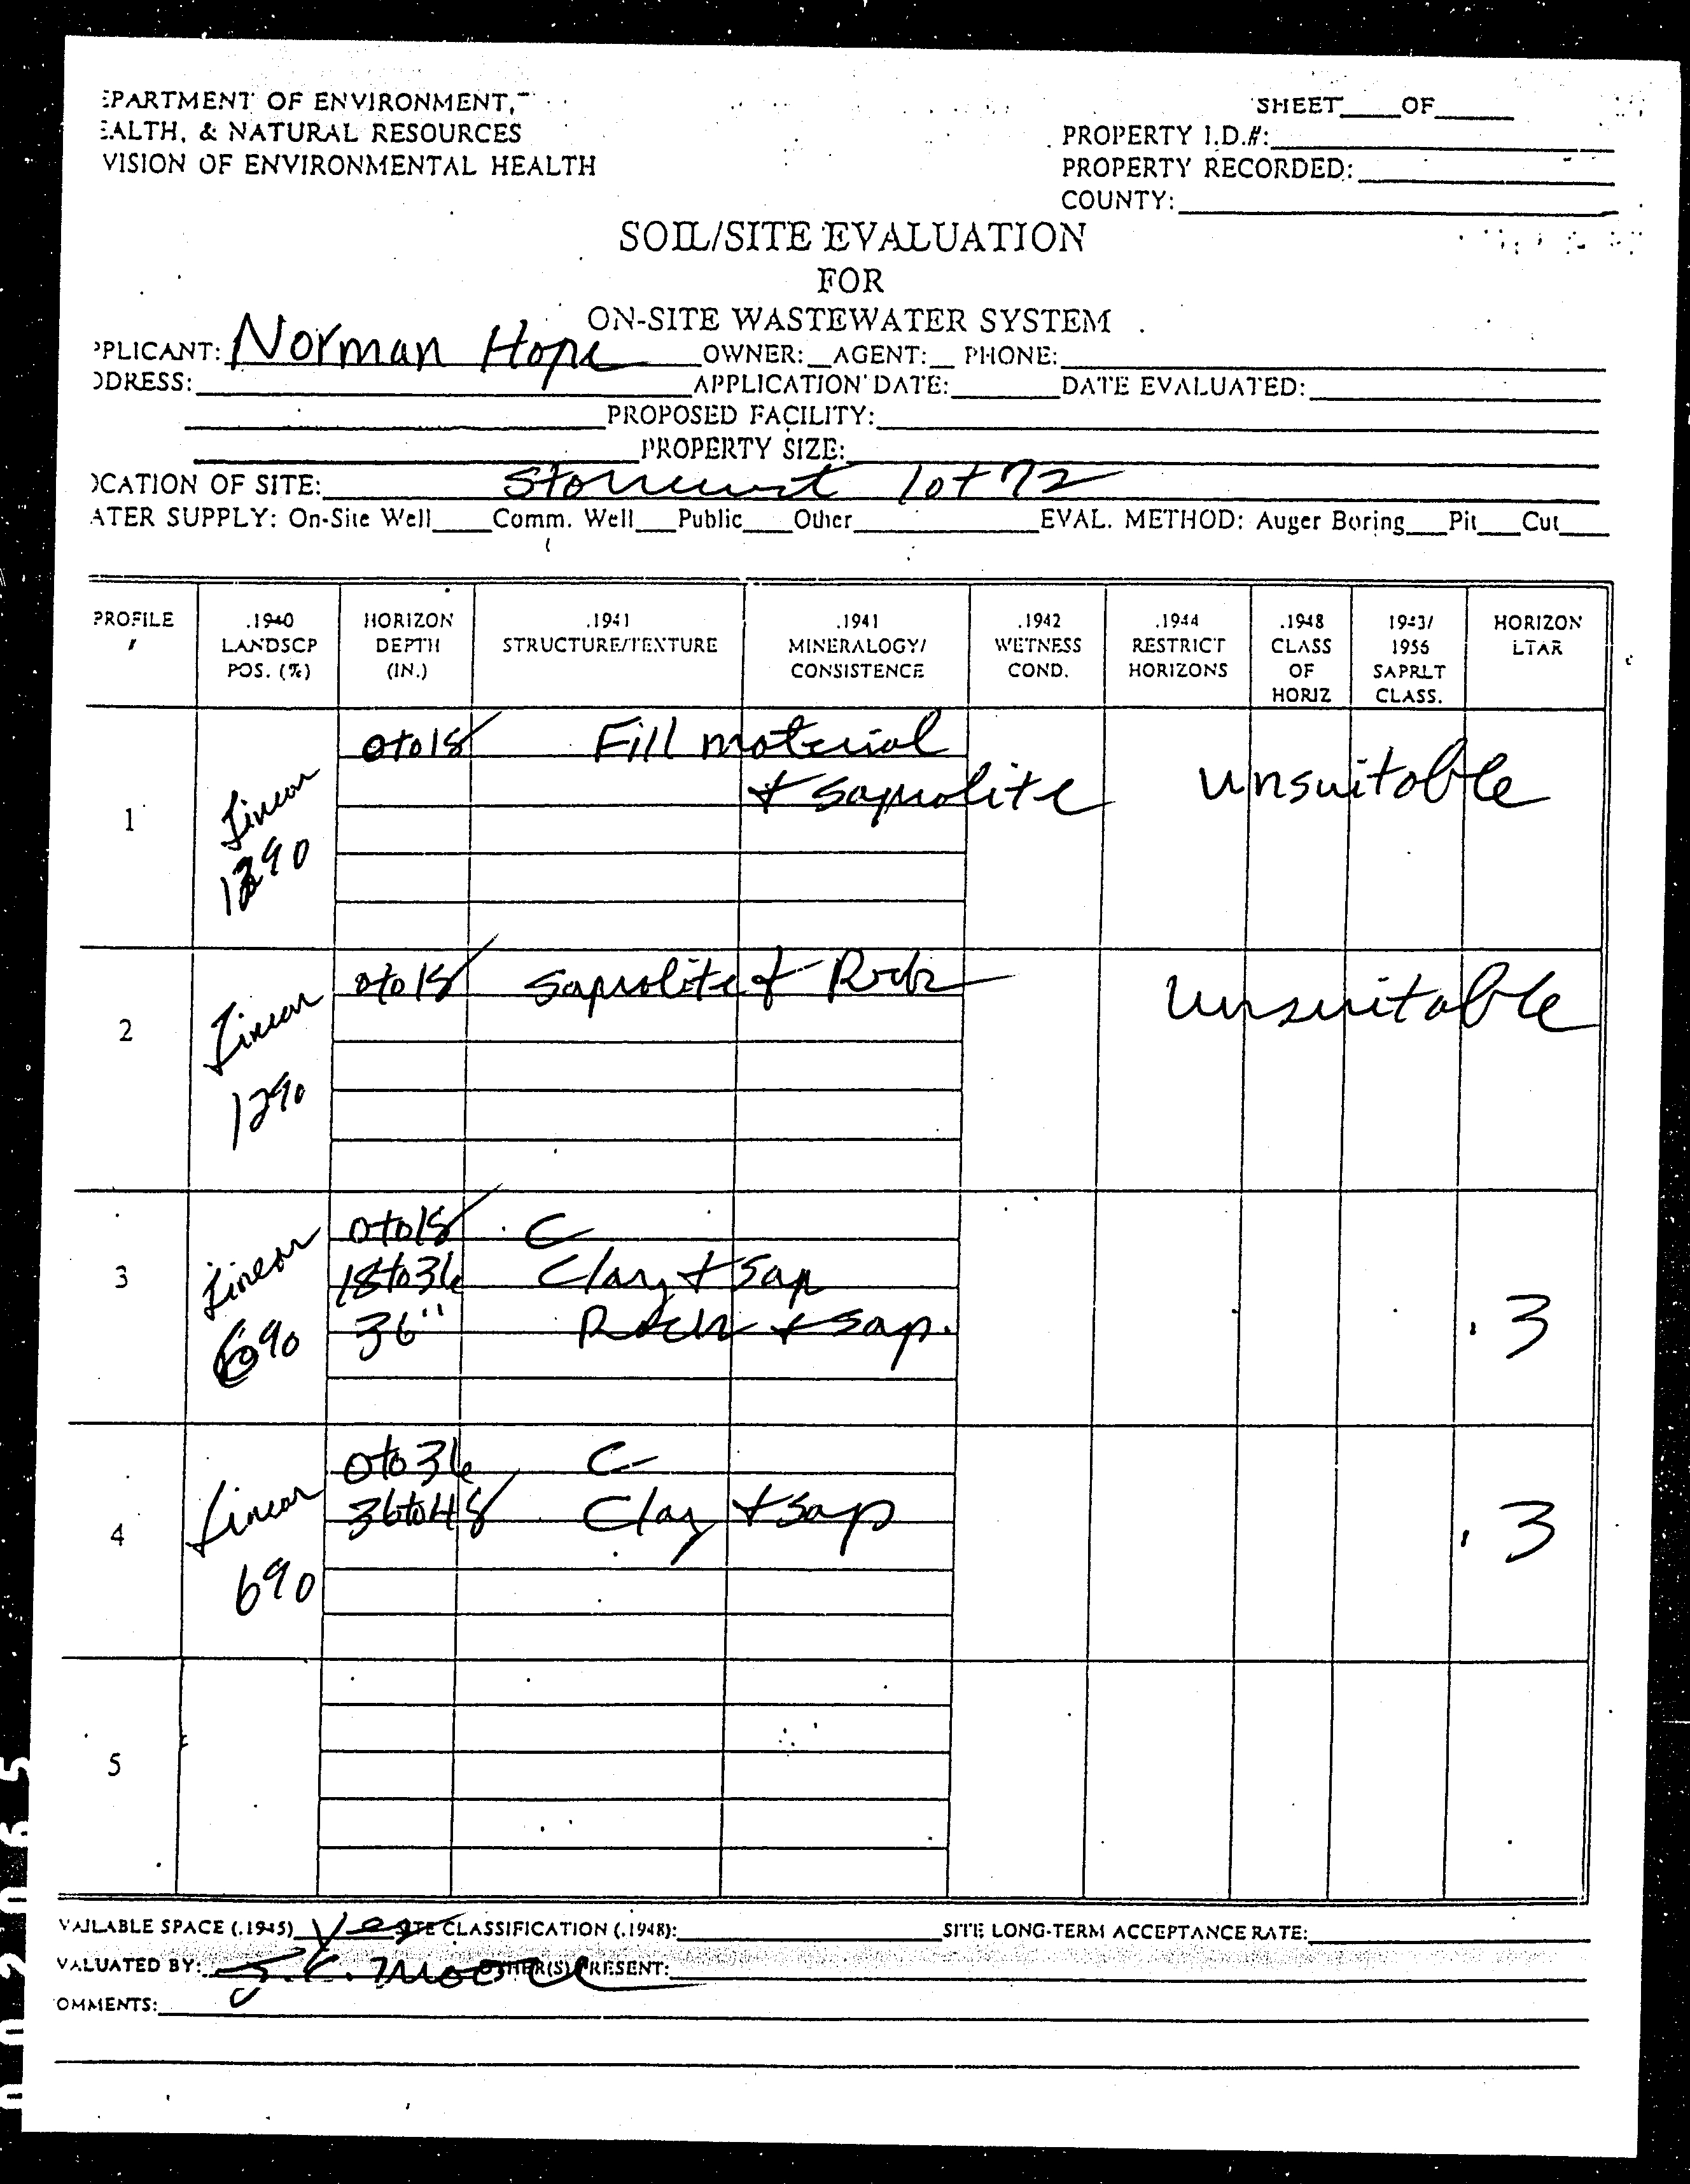 EPARTMENT OF ENVIRONMENT,
EALTH, & NATURAL RESOURCES
VISION OF ENVIRONMENTAL HEALTH
SHEET____OF____
PROPERTY I.D.#:
PROPERTY RECORDED:
COUNTY:
SOIL/SITE EVALUATION
FOR
ON-SITE WASTEWATER SYSTEM
PPLICANT: Norman Hope OWNER:__AGENT:__ PHONE:
DDRESS: APPLICATION DATE: DATE EVALUATED:
PROPOSED FACILITY:
PROPERTY SIZE:
OCATION OF SITE: lot 72
ATER SUPPLY: On-Site Well____Comm. Well___Public____Other____ EVAL. METHOD: Auger Boring___Pit___Cut___
PROFILE # .1940 LANDSCP POS. (%) HORIZON DEPTH (IN.) .1941 STRUCTURE/TEXTURE .1941 MINERALOGY/ CONSISTENCE .1942 WETNESS COND. .1944 RESTRICT HORIZONS .1948 CLASS OF HORIZ 1943/ 1956 SAPRLT CLASS. HORIZON LTAR
1 Linear 0 to 18 Fill material
+ saprolite unsuitable
2 Linear 12% 0 to 18 saprolite + Rock unsuitable
3 Linear 6% 0 to 18 C
18 to 36 Clay + Sap
36" Rock + sap. .3
4 Linear 6% 0 to 36 C
36 to 48 Clay + Sap .3
5
VAILABLE SPACE (.1945) Yes SITE CLASSIFICATION (.1948): SITE LONG-TERM ACCEPTANCE RATE:
VALUATED BY: Moore OTHER(S) PRESENT:
OMMENTS: